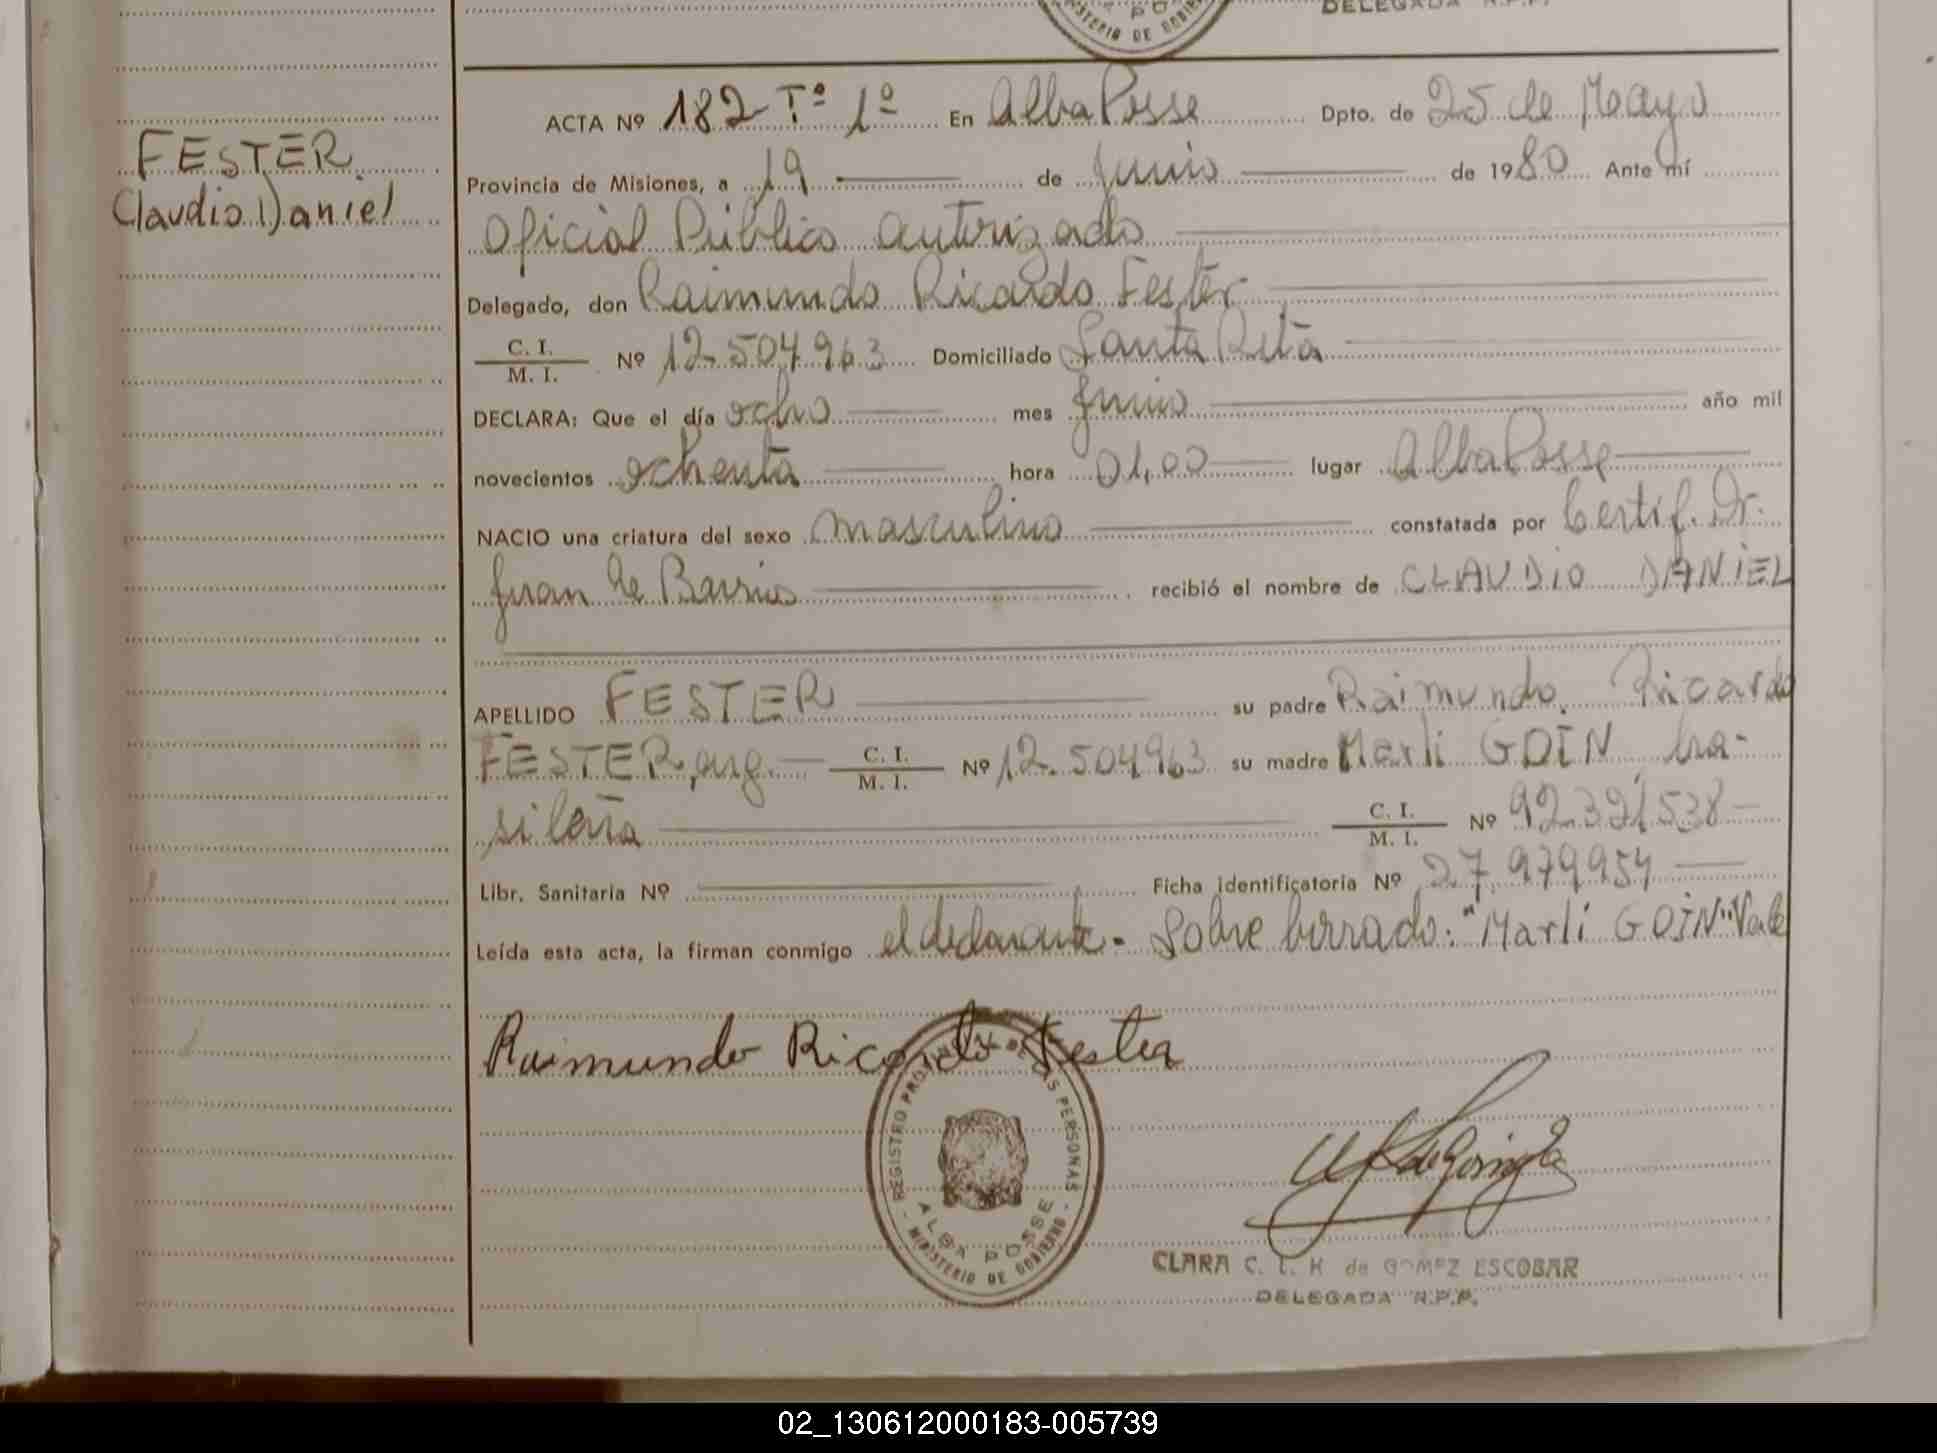 DELEGADA R.P.P.
MINISTERIO DE GOBIERNO
FESTER
Claudio Daniel
ACTA Nº 182 Tº 1º En Alba Posse Dpto. de 25 de Mayo
Provincia de Misiones, a 19 de Junio de 1980 Ante mí
Oficial Público autorizado
Delegado, don Raimundo Ricardo Fester
C. I. / M. I. Nº 12.504.963 Domiciliado Santa Rita
DECLARA: Que el día ocho mes Junio año mil
novecientos ochenta hora 01,00 lugar Alba Posse
NACIO una criatura del sexo masculino constatada por Certif. Dr.
Juan de Barrios recibió el nombre de CLAUDIO DANIEL
APELLIDO FESTER su padre Raimundo Ricardo
FESTER, arg. C. I. / M. I. Nº 12.504963 su madre Marli GOIN, bra-
sileña C. I. / M. I. Nº 92.321538
Libr. Sanitaria Nº Ficha identificatoria Nº 27.979954
Leída esta acta, la firman conmigo el declarante.- Sobre borrado: "Marli GOIN" Vale
Raimundo Ricardo Fester
REGISTRO PROVINCIAL DE LAS PERSONAS
ALBA POSSE
- MINISTERIO DE GOBIERNO -
CLARA C. L. H de GOMEZ ESCOBAR
DELEGADA R.P.P.
02_130612000183-005739